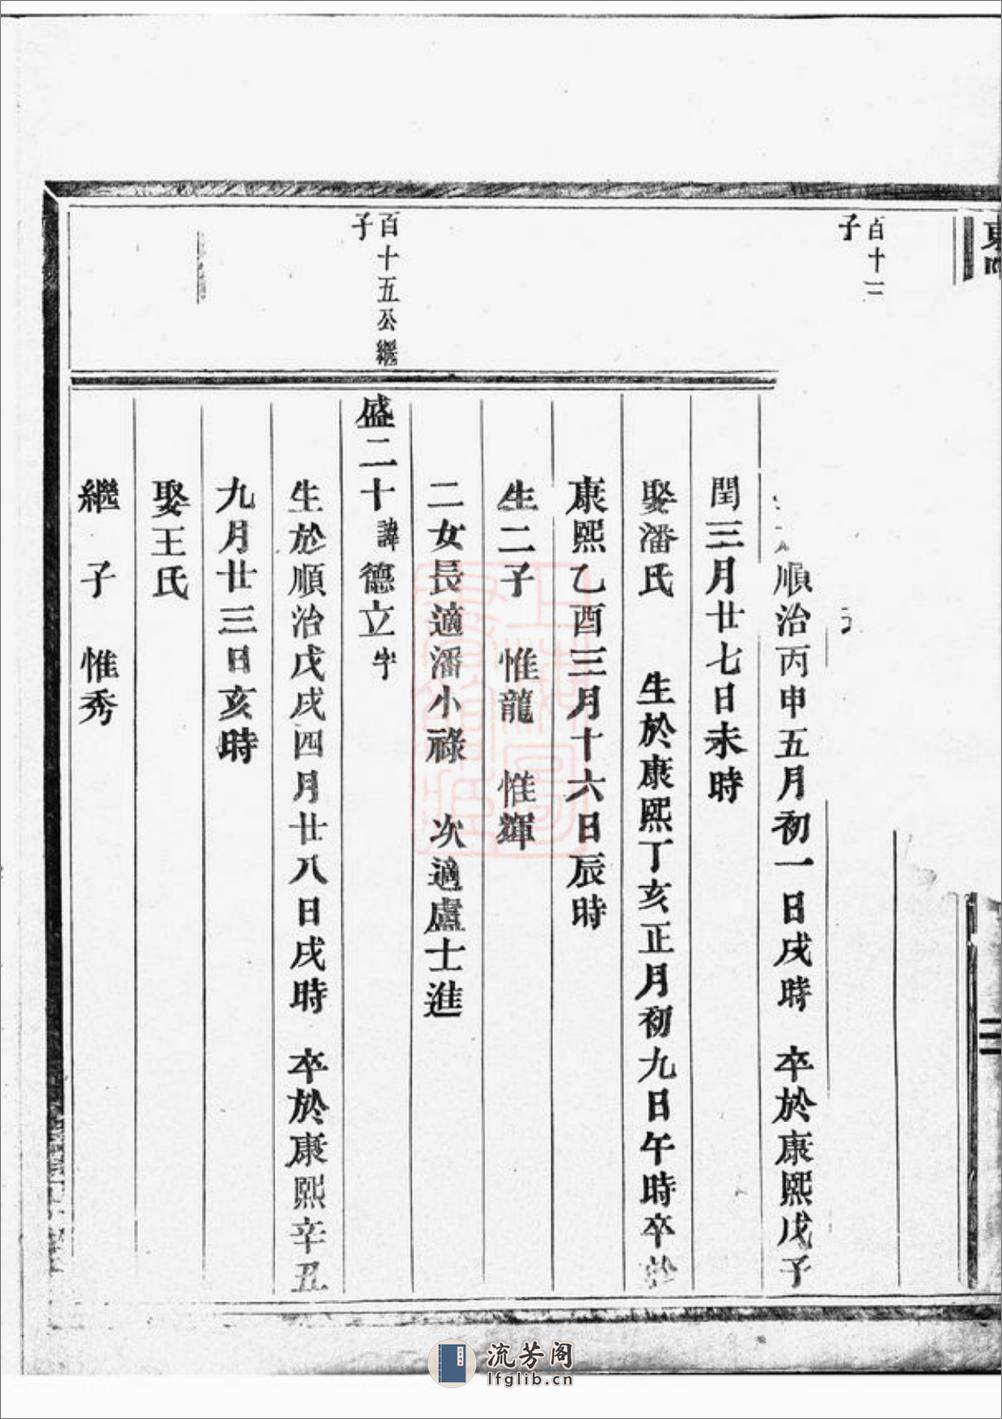 百十三
子
順治丙申五月初一日戌時 卒於康熙戊子
閏三月廿七日未時
娶潘氏 生於康熙丁亥正月初九日午時卒於
康熙乙酉三月十六日辰時
生二子 惟龍 惟輝
二女長適潘小祿 次適盧士進
百十五公繼
子
盛二十諱德立字
生於順治戊戌四月廿八日戌時 卒於康熙辛丑
九月廿三日亥時
娶王氏
繼子 惟秀
流芳阁
lfglib.cn